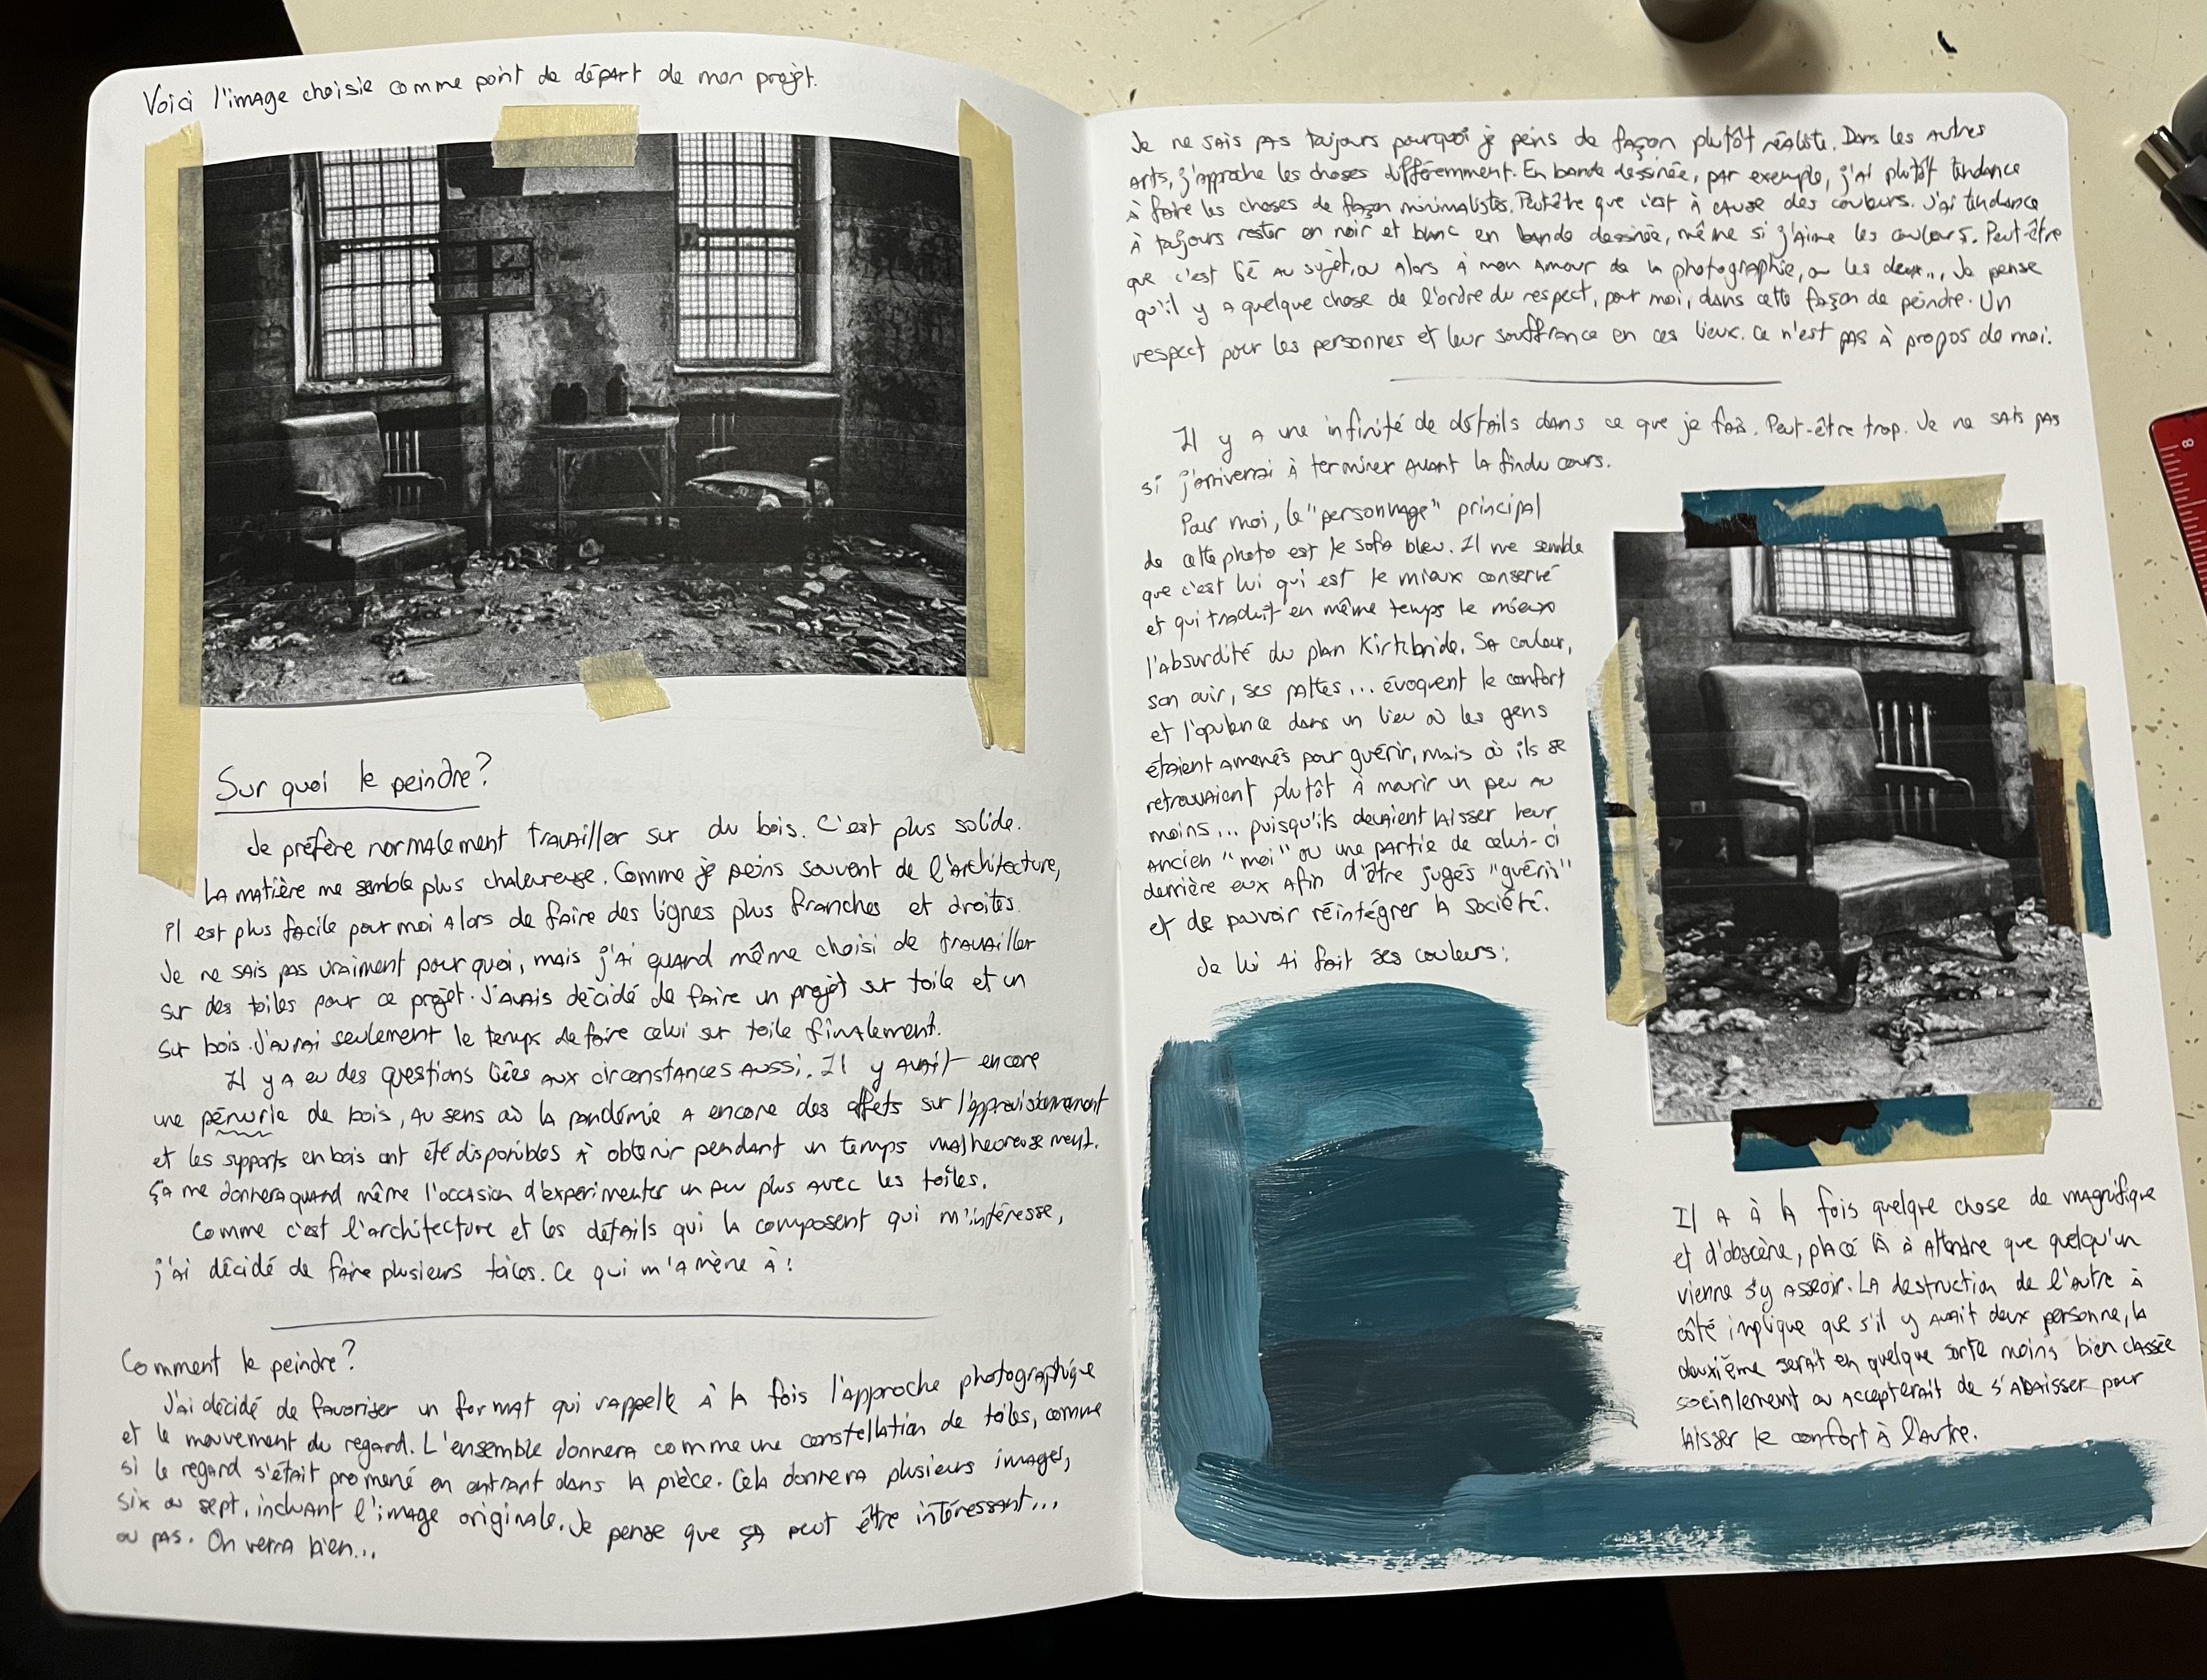 Voici l'image choisie comme point de départ de mon projet.
Sur quoi le peindre?
Je préfère normalement travailler sur du bois. C'est plus solide.
La matière me semble plus chaleureuse. Comme je peins souvent de l'architecture,
il est plus facile pour moi alors de faire des lignes plus franches et droites.
Je ne sais pas vraiment pourquoi, mais j'ai quand même choisi de travailler
sur des toiles pour ce projet. J'avais décidé de faire un projet sur toile et un
sur bois. J'aurai seulement le temps de faire celui sur toile finalement.
Il y a eu des questions liées aux circonstances aussi. Il y avait encore
une pénurie de bois, au sens où la pandémie a encore des effets sur l'approvisionnement
et les supports en bois ont été disponibles à obtenir pendant un temps malheureusement.
Ça me donnera quand même l'occasion d'expérimenter un peu plus avec les toiles.
Comme c'est l'architecture et les détails qui la composent qui m'intéresse,
j'ai décidé de faire plusieurs toiles. Ce qui m'amène à :
Comment le peindre?
J'ai décidé de favoriser un format qui rappelle à la fois l'approche photographique
et le mouvement du regard. L'ensemble donnera comme une constellation de toiles, comme
si le regard s'était promené en entrant dans la pièce. Cela donnera plusieurs images,
six ou sept, incluant l'image originale. Je pense que ça peut être intéressant...
ou pas. On verra bien...
Je ne sais pas toujours pourquoi je peins de façon plutôt réaliste. Dans les autres
arts, j'approche les choses différemment. En bande dessinée, par exemple, j'ai plutôt tendance
à faire les choses de façon minimalistes. Peut-être que c'est à cause des couleurs. J'ai tendance
à toujours rester en noir et blanc en bande dessinée, même si j'aime les couleurs. Peut-être
que c'est lié au sujet, ou alors à mon amour de la photographie, ou les deux... Je pense
qu'il y a quelque chose de l'ordre du respect, pour moi, dans cette façon de peindre. Un
respect pour les personnes et leur souffrance en ces lieux. Ce n'est pas à propos de moi.
Il y a une infinité de détails dans ce que je fais. Peut-être trop. Je ne sais pas
si j'arriverai à terminer avant la fin du cours.
Pour moi, le "personnage" principal
de cette photo est le sofa bleu. Il me semble
que c'est lui qui est le mieux conservé
et qui traduit en même temps le mieux
l'absurdité du plan Kirkbride. Sa couleur,
son cuir, ses pattes... évoquent le confort
et l'opulence dans un lieu où les gens
étaient amenés pour guérir, mais où ils se
retrouvaient plutôt à mourir un peu au
moins... puisqu'ils devaient laisser leur
ancien "moi" ou une partie de celui-ci
derrière eux afin d'être jugés "guéris"
et de pouvoir réintégrer la société.
Je lui ai fait ses couleurs :
Il a à la fois quelque chose de magnifique
et d'obscène, placé là à attendre que quelqu'un
vienne s'y asseoir. La destruction de l'autre à
côté implique que s'il y avait deux personne, la
deuxième serait en quelque sorte moins bien classée
socialement ou accepterait de s'abaisser pour
laisser le confort à l'autre.
8